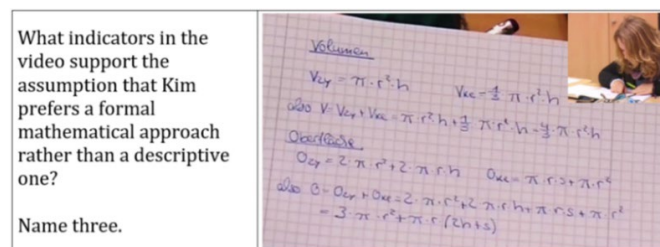 What indicators in the
video support the
assumption that Kim
prefers a formal
mathematical approach
rather than a descriptive
one?
Name three.
Volumen
V_Zy = π·r²·h V_Ke = 1/3 π·r²·h
also V = V_Zy + V_Ke = π·r²h + 1/3 π·r²·h = 4/3·π r²h
Oberfläche
O_Zy = 2·π·r² + 2·π·r·h O_Ke = π·r·s + π·r²
also O = O_Zy + O_Ke = 2·π·r² + 2·π·r·h + π·r·s + π·r²
= 3·π·r² + π·r (2h + s)